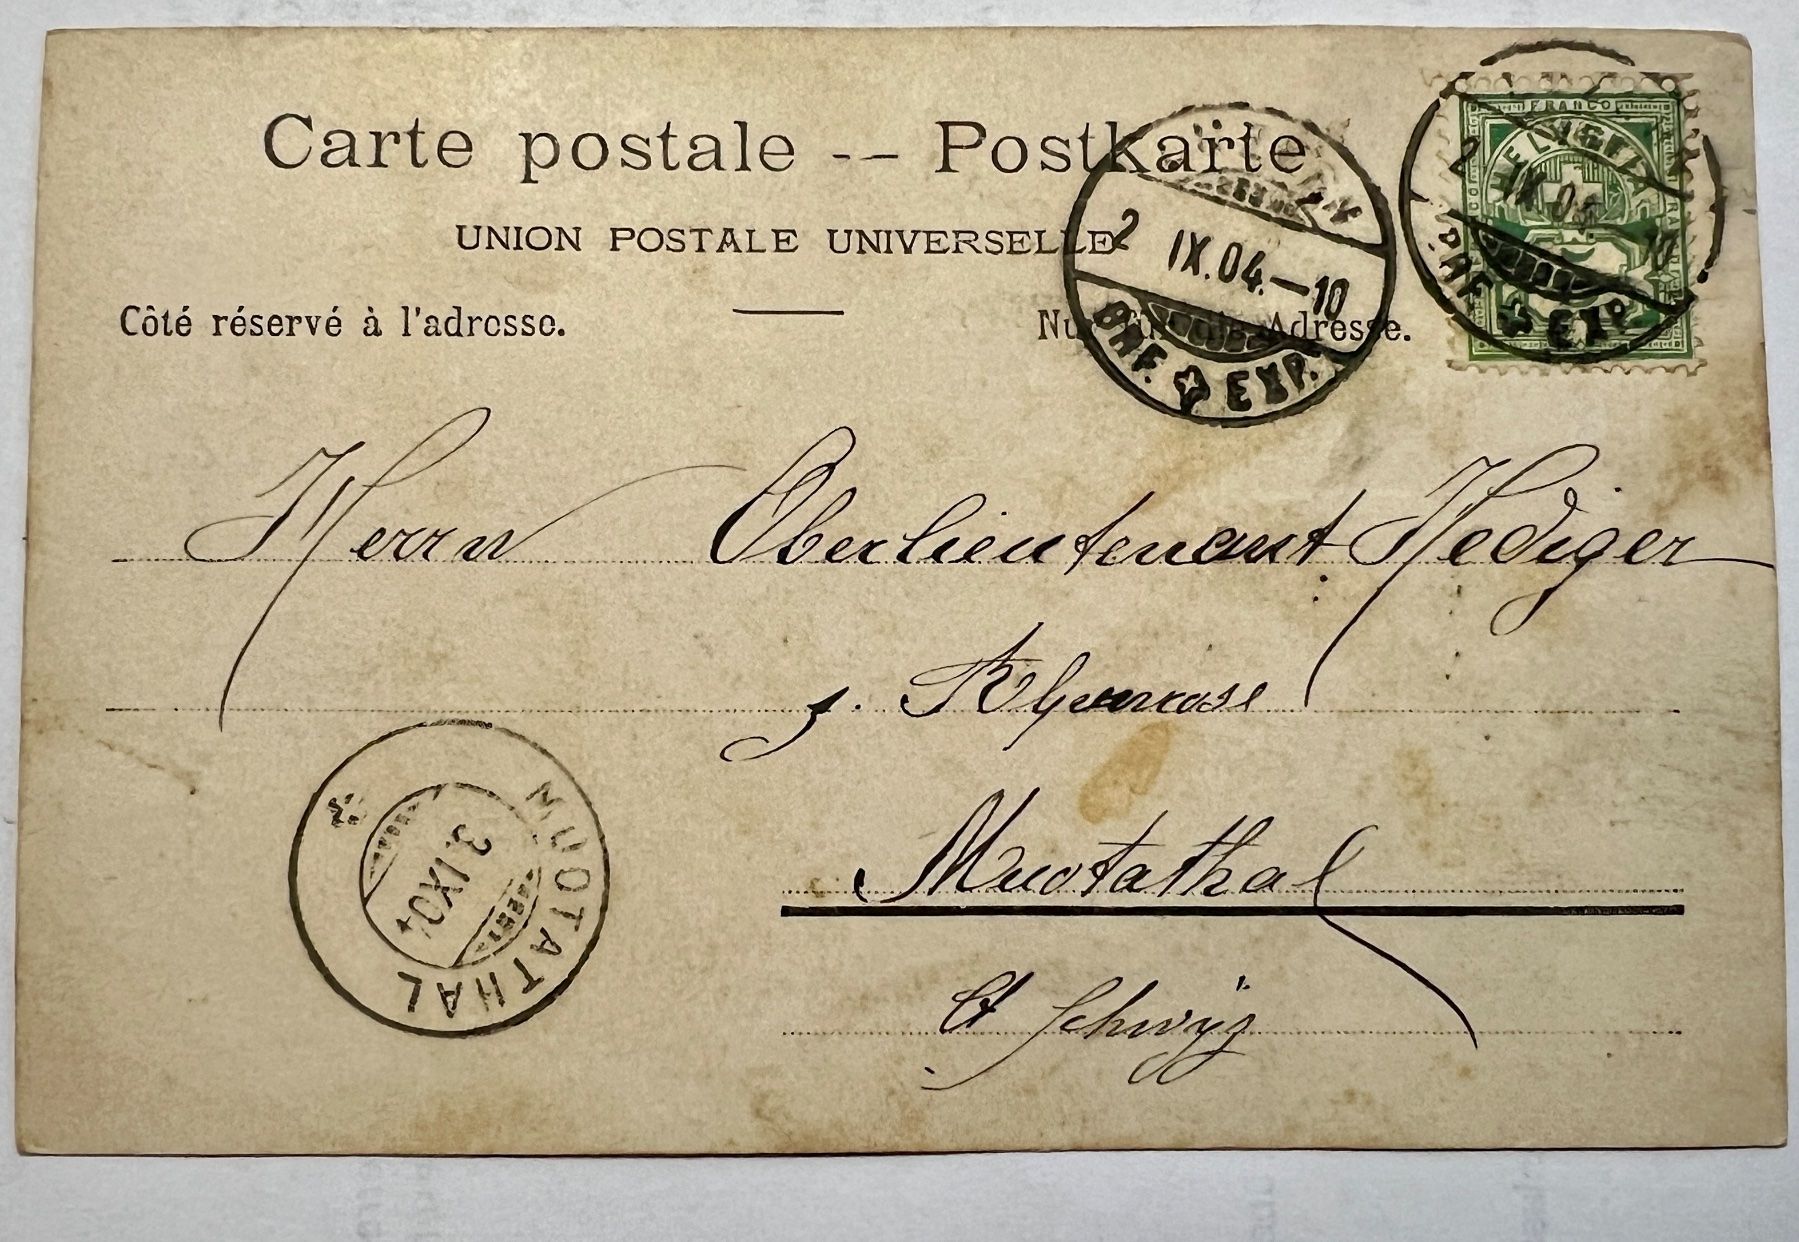 Carte postale -- Postkarte
UNION POSTALE UNIVERSELLE
Côté réservé à l'adresse.
Nur für die Adresse.
2 IX.04.-10
BHF. EXP.
FRANCO
HELVETIA
2 IX.04. 10
BHF. EXP.
Herrn Oberlieutenant Hediger
z.
Muotathal
Ct Schwÿz
MUOTATHAL
3.IX.04